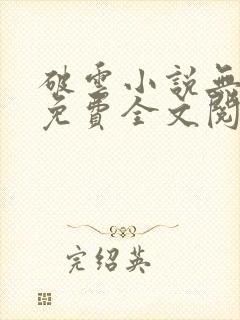 破雲小說無
免費全文閱
完绍英